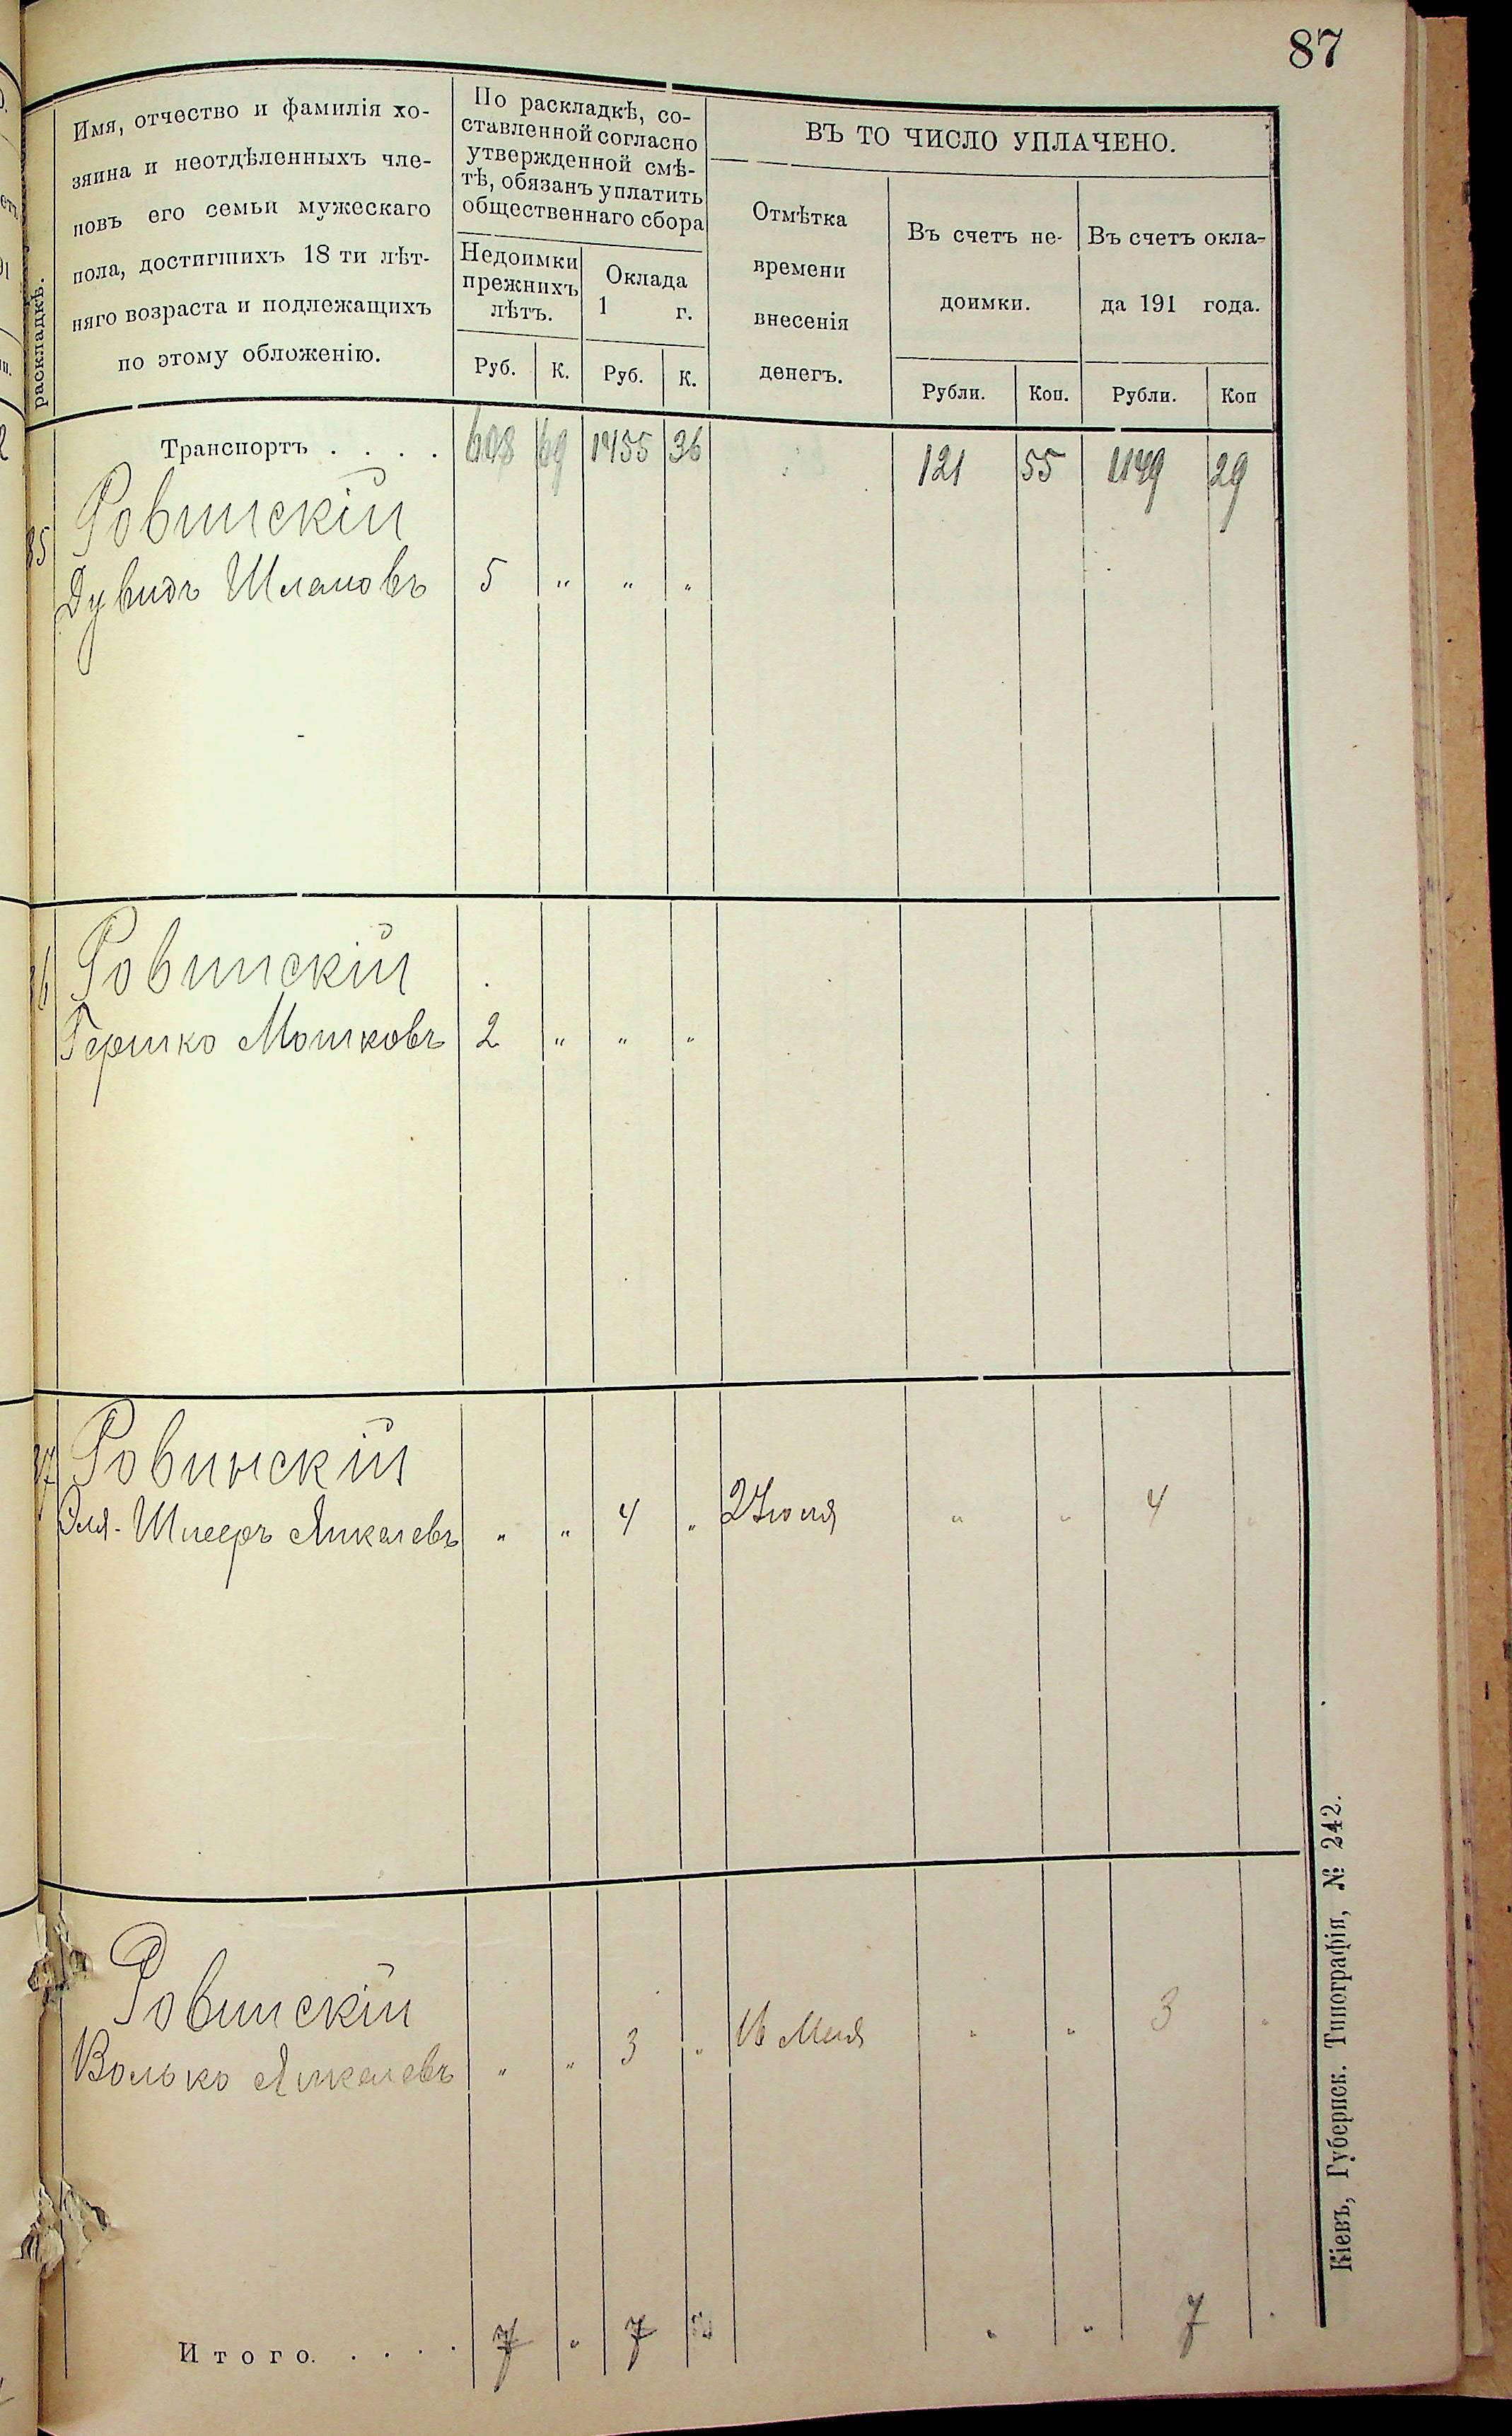 87
раскладкѣ.
Имя, отчество и фамилія хо-
зяина и неотдѣленныхъ чле-
новъ его семьи мужескаго
пола, достигшихъ 18 ти лѣт-
няго возраста и подлежащихъ
по этому обложенію.
По раскладкѣ, со-
ставленной согласно
утвержденной смѣ-
тѣ, обязанъ уплатить
общественнаго сбора
Недоимки
прежнихъ
лѣтъ.
Оклада
1 г.
Руб. К. Руб. К.
ВЪ ТО ЧИСЛО УПЛАЧЕНО.
Отмѣтка
времени
внесенія
денегъ.
Въ счетъ не-
доимки.
Въ счетъ окла-
да 191 года.
Рубли. Коп. Рубли. Коп
Транспортъ . . . . 608 69 1455 36 121 55 1149 29
85 Ровинскій
Дувидъ Шлемовъ 5 " " "
Ровинскій
Гершко Мошковъ 2 " " "
Ровинскій
Эля-Шмееръ Янкелевъ " " 4 " 2 Июля " " 4 "
Ровинскій
Волько Янкелевъ " " 3 " 16 Мая " " 3 "
Итого. . . . . 7 " 7 " " " 7
Кіевъ, Губернск. Типографія, № 242.